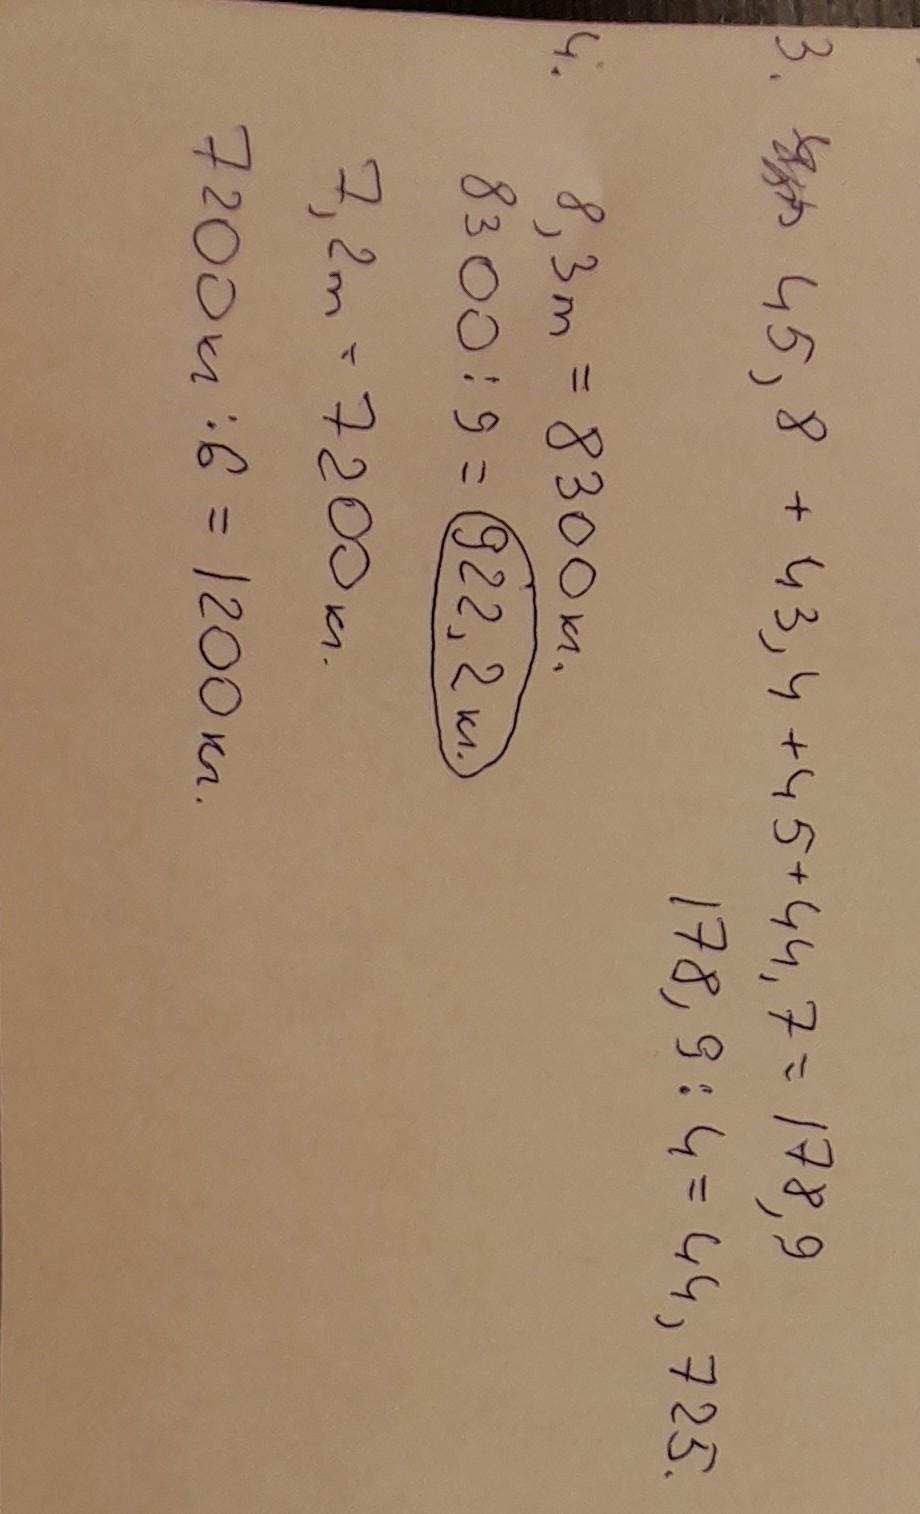 3. 45,8 + 43,4 + 45 + 44,7 = 178,9
178,9 : 4 = 44,725.
4. 8,3т = 8300кг.
8300 : 9 = 922,2кг.
7,2т = 7200кг.
7200кг : 6 = 1200кг.